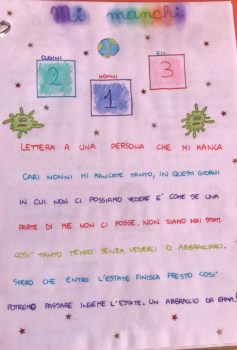 Mi manchi
CUGINI
2
NONNI
1
ZII
3
LETTERA A UNA PERSONA CHE MI MANCA
CARI NONNI MI MANCATE TANTO, IN QUESTI GIORNI
IN CUI NON CI POSSIAMO VEDERE E' COME SE UNA
PARTE DI ME NON CI FOSSE. NON SIAMO MAI STATI
COSI' TANTO TEMPO SENZA VEDERCI O ABBRACIARCI.
SPERO CHE ENTRO L'ESTATE FINISCA PRESTO COSI'
POTREMO PASSARE INSIEME L'ESTATE. UN ABBRACCIO DA EMMA!